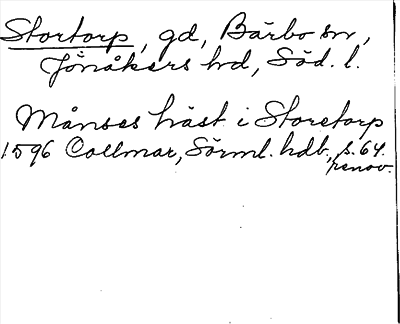 Stortorp, gd, Bärbo sn,
Jönåkers hd, Söd. l.
Månses häst i Storetorp
1596 Collmar, Sörml. hdb, s. 64.
renov.